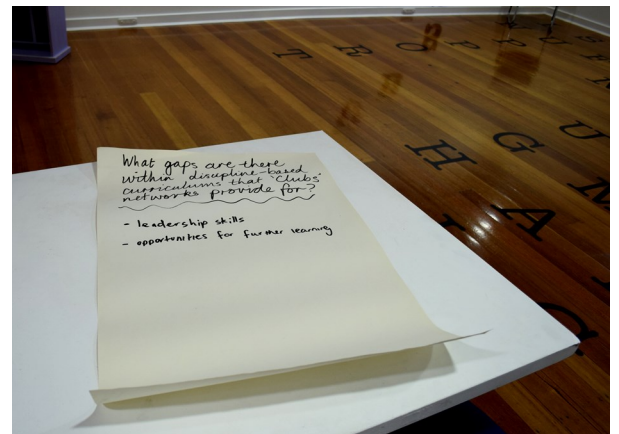 What gaps are there
within discipline-based
curriculums that 'Clubs'
networks provide for?
- leadership skills
- opportunities for further learning
T R O P P U S
H G U
A M